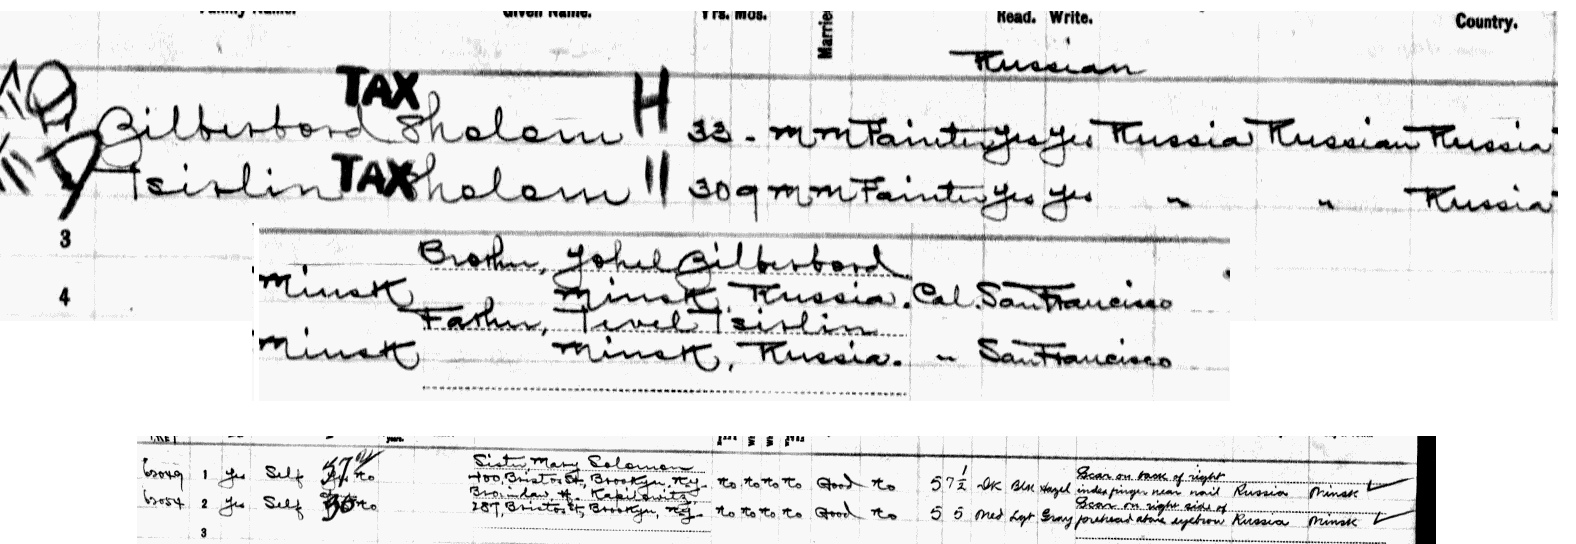 Family Name. Given Name. Yrs. Mos. Married Read. Write. Country.
Russian
TAX
Gilberbord Sholom H 33 - m m Painter yes yes Russia Russian Russia
Tsirlin TAX Sholom 11 30 9 m m Painter yes yes " " Russia
3
4
Brother, Yohel Gilberbord
Minsk Minsk, Russia. Cal. San Francisco
Father, Tevel Tsirlin
Minsk Minsk, Russia. " San Francisco
Sister Mary Solomon
1 yes Self 37 no 400, Bristol St, Brooklyn, N.Y. no no no no Good no 5 7 1/2 DK Blk Hazel Scar on back of right index finger near nail Russia Minsk
Bro in law, H. Kapilowitz
2 yes Self no 287, Bristol St, Brooklyn, N.Y. no no no no Good no 5 5 Med Lgt Gray Scar on right side of forehead above eyebrow Russia Minsk
3